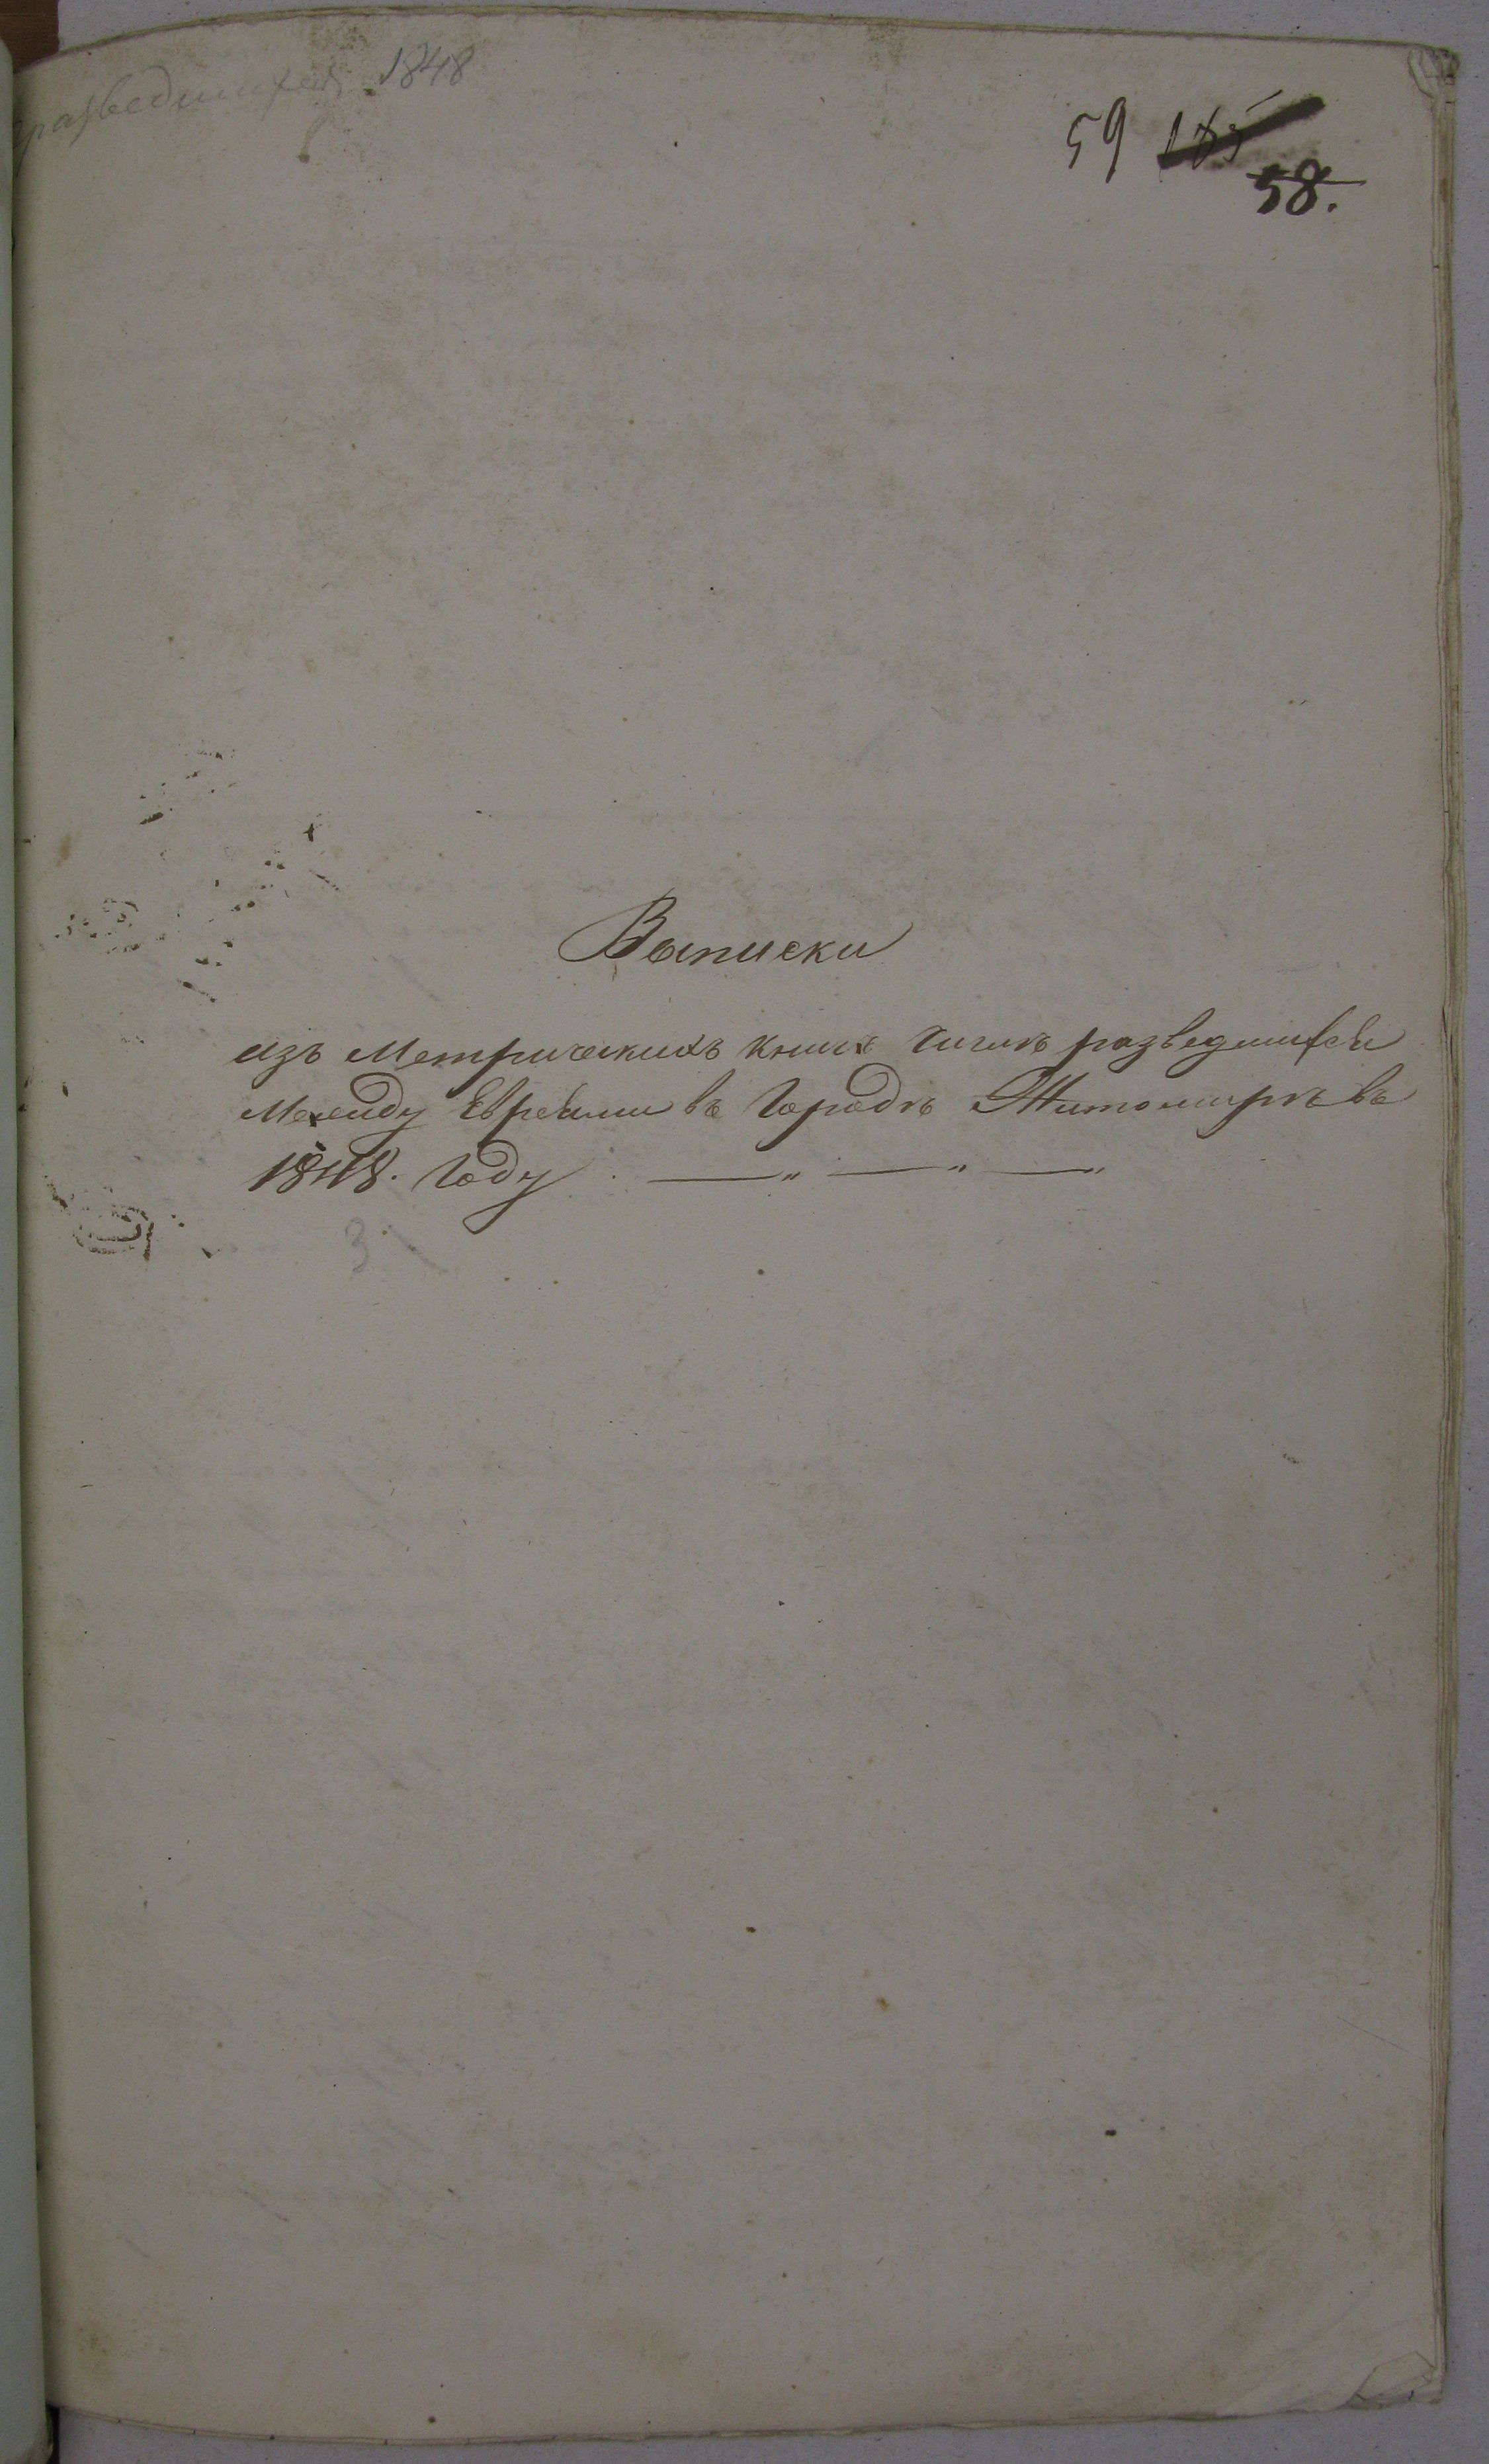 разведшихся 1848
59 185
58.
Выписки
изъ Метрическихъ книгъ числъ разведшихся
Между Евреями въ Городѣ Житомирѣ въ
1848. Году . — „ — „ — „
3